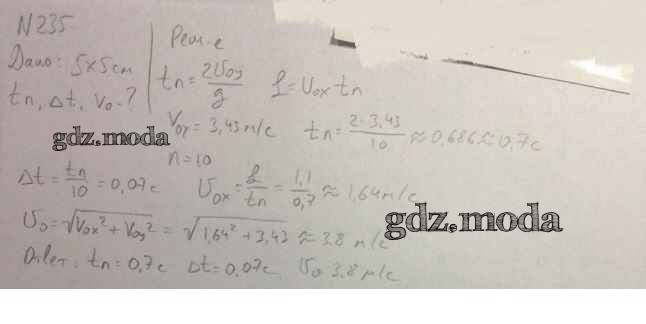 N 235
Дано: 5×5см
tп, Δt, V₀-?
Реш-е
tп = 2U₀y/g   ℓ = U₀x tп
V₀y = 3,43 м/с   tп = 2·3,43/10 ≈ 0,686 ≈ 0,7с
n = 10
gdz.moda
Δt = tп/10 = 0,07с   U₀x = ℓ/tп = 1,1/0,7 ≈ 1,64 м/с
gdz.moda
U₀ = √(V₀x² + V₀y²) = √(1,64² + 3,43) ≈ 3,8 м/с
Ответ: tп = 0,7с   Δt = 0,07с   U₀ 3,8 м/с